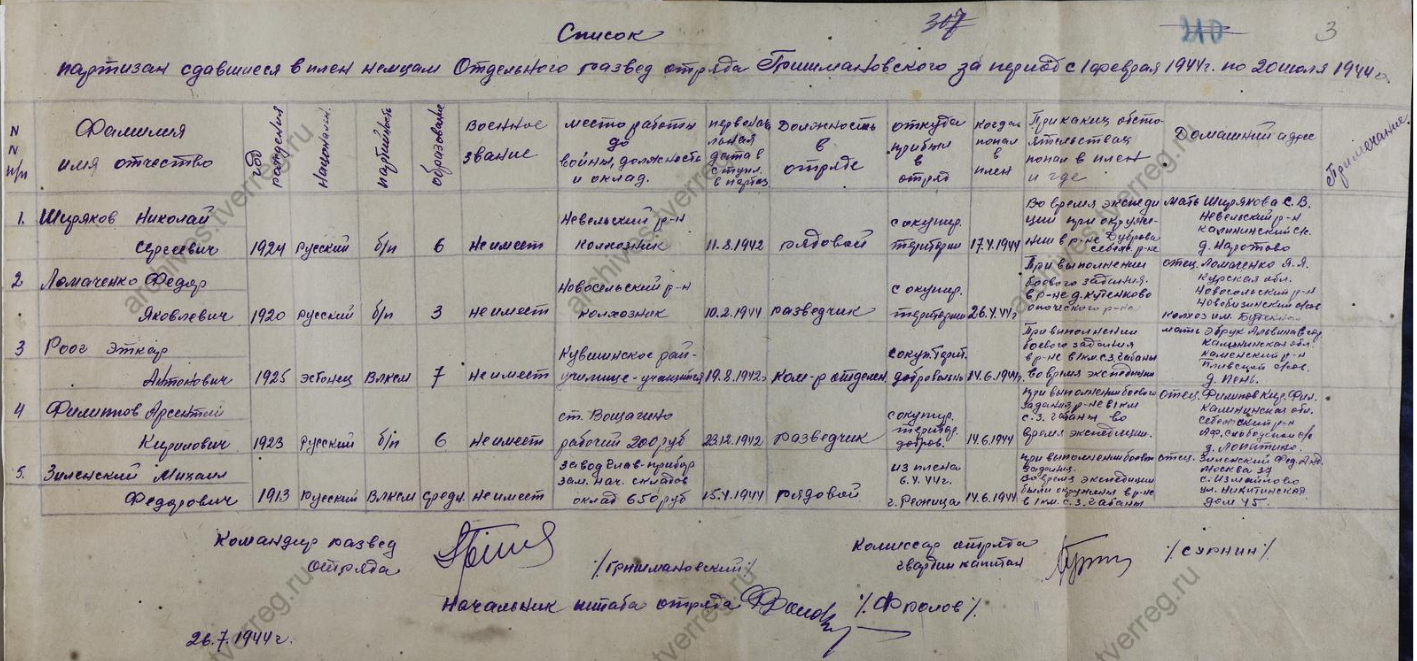 Список 307 210 3
партизан сдавшиеся в плен немцам Отдельного развед отряда Гришмановского за период с 1 февраля 1944г. по 20 июля 1944г.
N N п/п
Фамилия имя отчество
год рождения
Национальн.
партийность
образование
Военное звание
место работы до войны, должность и оклад.
первоначальная дата вступл. в партиз
Должность в отряде
откуда прибыл в отряд
Когда попал в плен
При каких обстоятельствах попал в плен и где
Домашний адрес
Примечание.
1. Ширяков Николай
Сергеевич 1924 русский б/п 6 не имеет
Невельский р-н
колхозник 11.8.1942 рядовой
с окупир.
территории 17.4.1944
Во время экспеди
ции при окруже-
нии в р-не Дуброва
себеж. р-не
мать Ширякова С.В.
Невельский р-н
Калининский
2 Ломаченко Федор
Яковлевич 1920 русский б/п 3 не имеет
Новосельский р-н
колхозник 10.2.1944 разведчик
с окупир.
территории 26.4.44г.
При выполнении
боевого задания.
в р-не д. Кутенково
опочского р-на
отец Ломаченко Я.Я.
Курская обл.
Новосельский р-н
колхоз им.
3 Роог Эткар
Антонович 1925 эстонец Влксм 7 не имеет
Кувшинское рай-
училище - учащийся 19.8.1942г ком-р отделен.
окуп. терит.
добровольно 14.6.1944г.
При выполнении
боевого задания
в р-не 1 км с.з. Чабаны
во время экспедиции
мать Эбрук
Калининская обл.
р-н
д. Пень.
4 Филиппов Арсентий
Кирилович 1923 русский б/п 6 не имеет
ст. Вощагино
рабочий 200 руб 23.12.1942 разведчик
с окупир.
территор.
добров. 14.6.1944
при выполнении боев.
задания р-не в 1 км
с.з. Чабаны во
время экспедиции.
отец. Филипов Кир. Фил.
Калининская обл.
Себежский р-н
д. Лопатино.
5. Зиленский Михаил
Федорович 1913 русский Влксм средн. не имеет
завод Глав-прибор
зам. нач. складов
оклад 650 руб 15.4.1944 рядовой
из плена
6.4.44г.
г. Режица 14.6.1944г.
при выполнении боев
задания.
во время экспедиции
были окружены в р-не
в 1 км. с.з. Чабаны
отец. Зиленский Фед.
Москва
с. Измайлово
ул. Никитинская
дом 45.
Командир развед
отряда /Гришмановский/
Комиссар отряда
гвардии капитан /Сурнин/
Начальник штаба отряда /Фролов/.
26.7.1944г.
archives.tverreg.ru
archives.tverreg.ru
archives.tverreg.ru